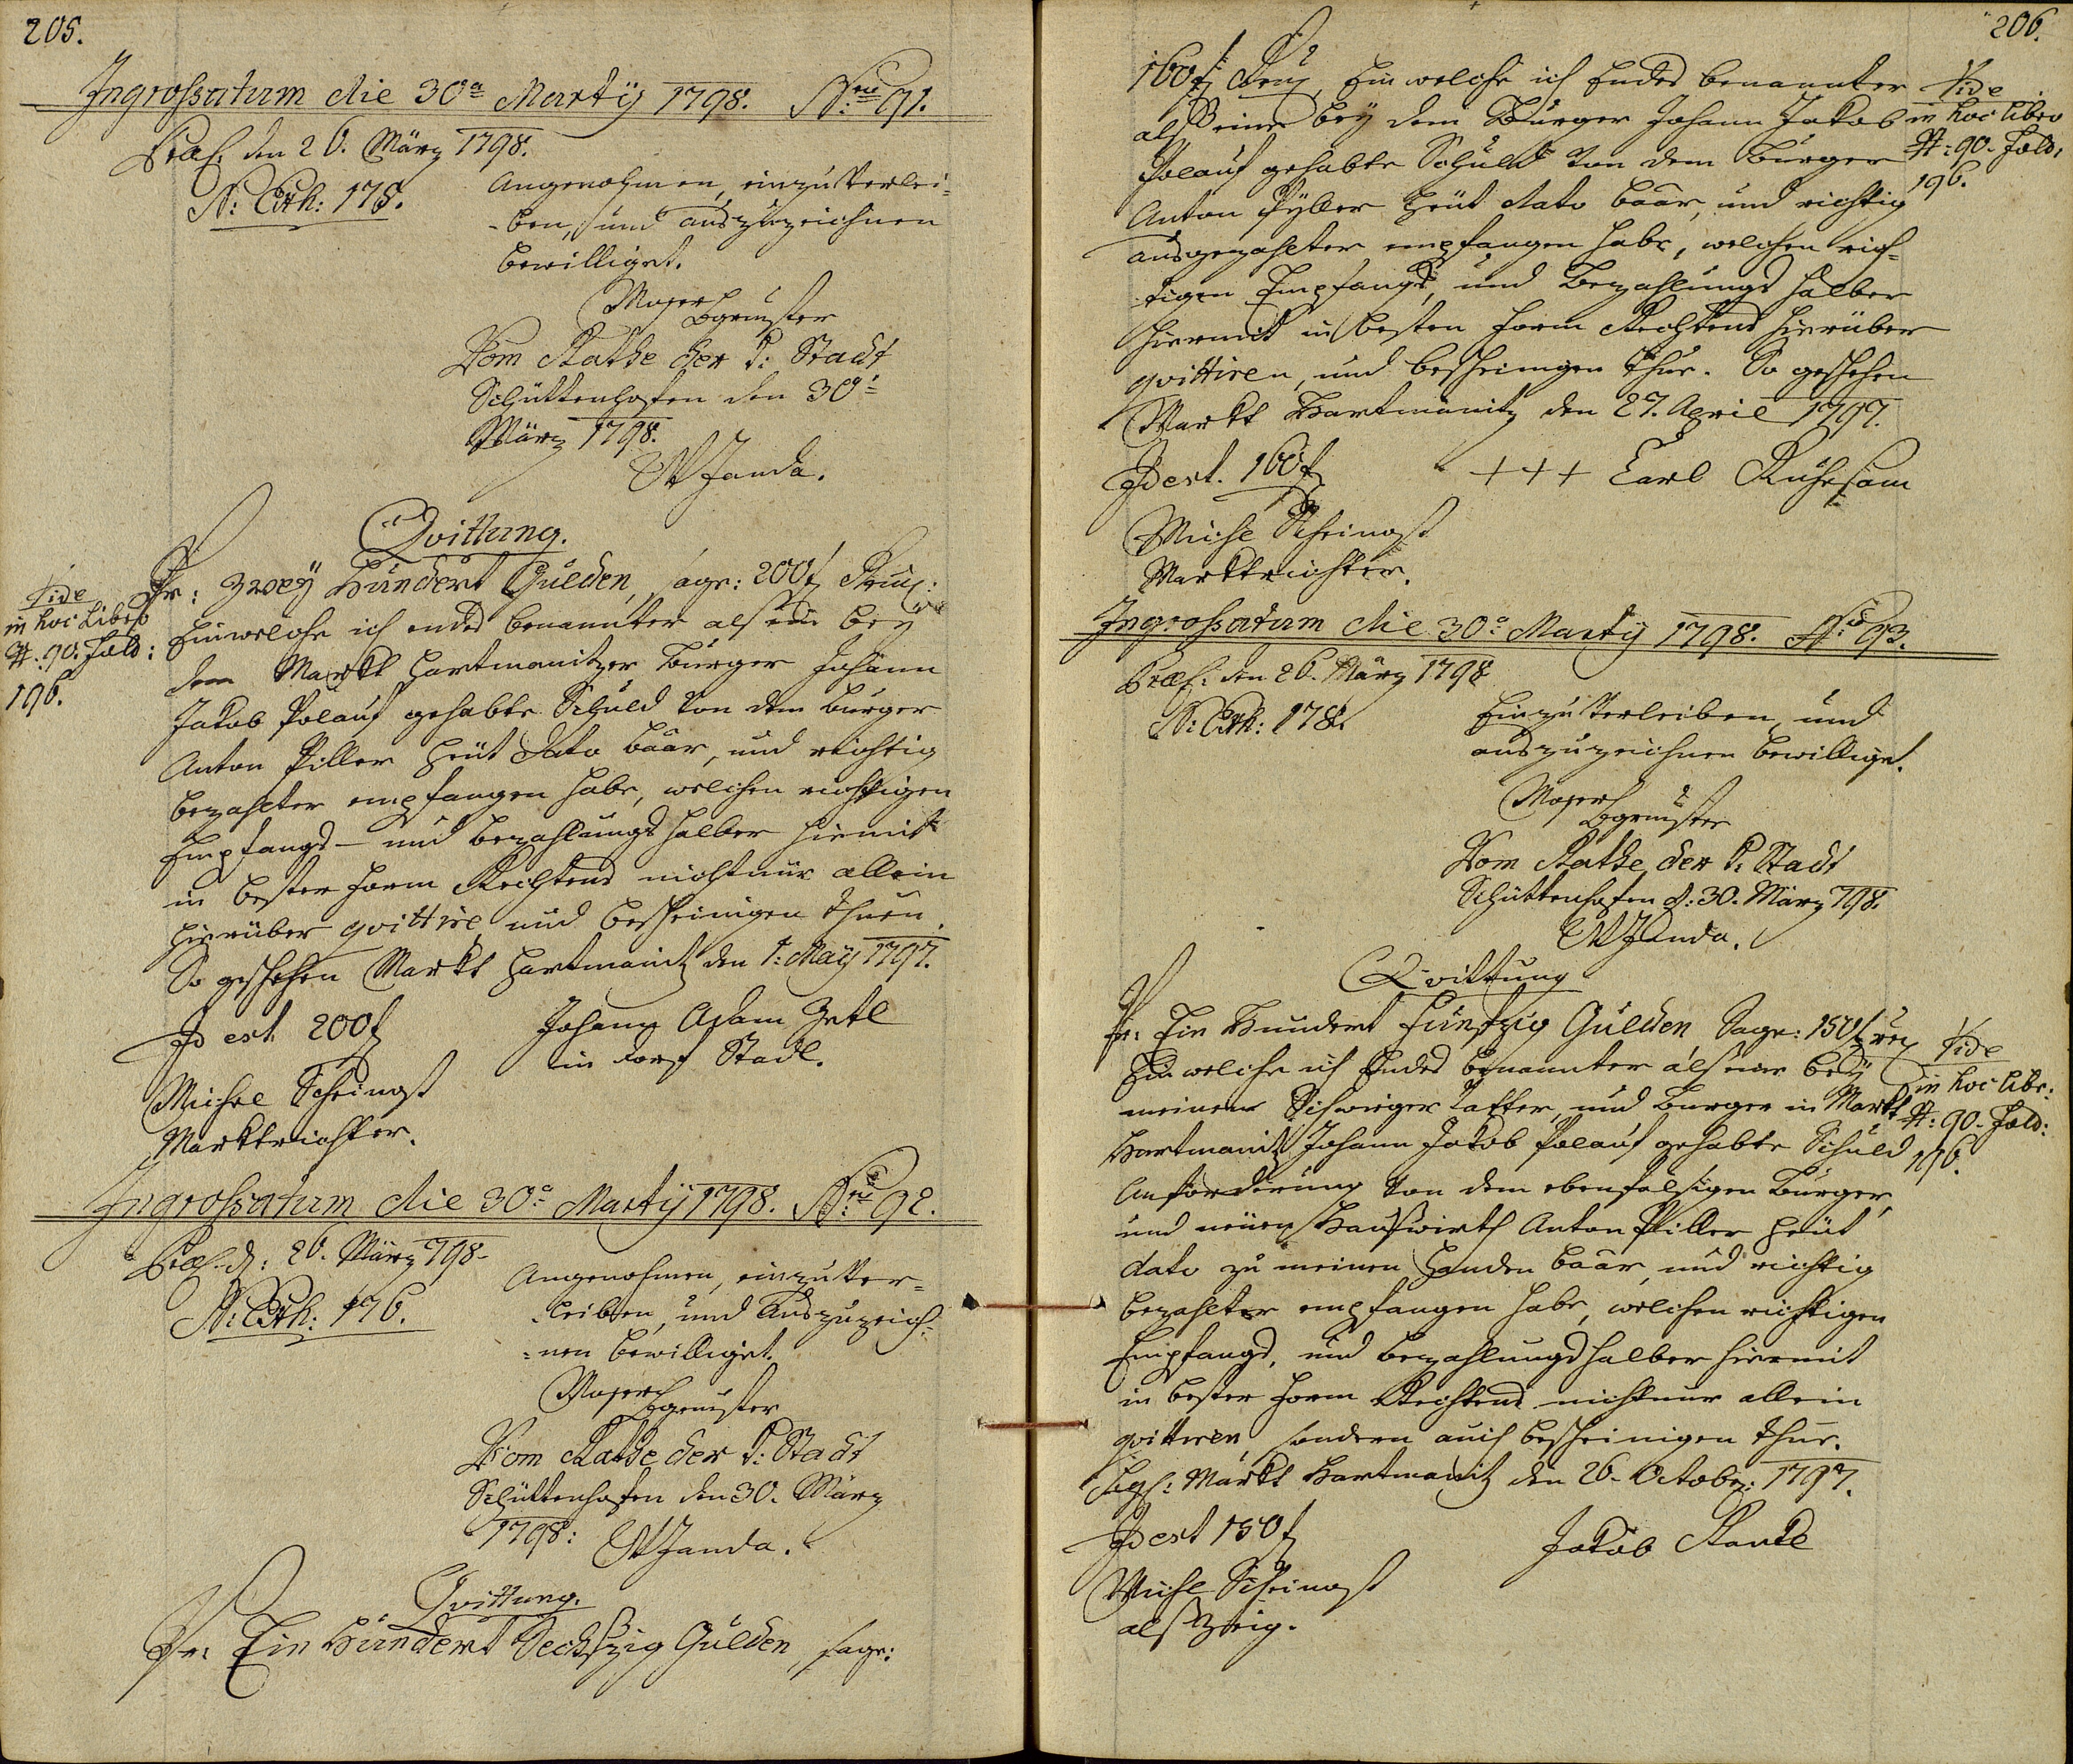 205.
Ingrossatum die 30a Martÿ 1798. Nro 91.
Præs. den 26. März 1798.
N: Exh: 175.
Angenohmen, einzuverlei=
=ben, und auszuzeichnen
bewilliget.
Mayer
Bgrmister
Vom Rathe der k: Stadt
Schüttenhofen den 30t
März 1798.
W Janda.
Qvittung.
Pr: Zweÿ Hundert Gulden, sage: 200 f
Vide
in hoc Libro
N: 90. Fold:
196.
Ein welche ich ended benannter alseine beÿ
dem Markt Hartmanitzer Burger Johann
Jakob Polauf gehabte Schuld von dem Burger
Anton Piller heut Dato baar, und richtig
bezahlter empfangen habe, welchen richtigen
Empfangs- und bezahlungs halber hiemit
in bester Form Rechtens nicht nur allein
hierüber qvittire und bescheinigen thuen.
So geschehen Markt Hartmanitz den 1: Maÿ 1797.
Id est 200 f
Johann Adam Zetl
in Dorf Stadl.
Michel Scheinost
Marktrichter.
Ingrossatum die 30a Martÿ 1798. Nro 92.
Præs. d: 26. März 798.
N: Exh: 176.
Angenohmen, einzuver=
=leiben, und Auszuzeich=
=nen bewilliget.
Mayer
Bgrmister
Vom Rathe der k: Stadt
Schüttenhofen den 30. März
1798: W Janda.
Qvittung.
Pr: Ein Hundert Sechszig Gulden, sage:
206.
160 f Ein welche ich Endes benannter
Vide
in hoc libro
N: 90. Fold:
196.
alß eine beÿ dem Burger Johann Jakob
Polauf gehabte Schuld von dem Burger
Anton Pÿller heut dato baar, und richtig
ausgezahlter empfangen habe, welchen rich=
tigen Empfangs, und Bezahlungs halber
hiermit in besten Form Rechtens hierüber
qvittiren, und bescheinigen thue. So geschehen
Markt Hartmanitz den 27. April 1797.
Id est. 160 f
+++ Carl Ruhesam
Michl Scheinost
Marktrichter.
Ingrossatum die 30a Martÿ 1798. Nro 93.
Præs: den 26. März 1798
N: Exh: 178.
Einzuverleiben, und
auszuzeichnen bewilliget.
Mayer
Bgrmister
Vom Rathe der k: Stadt
Schüttenhofen d: 30. März 798.
W Janda.
Qvittung
Pr: Ein Hundert Fünfzig Gulden, Sage: 150 f
Vide
in hoc libr:
N: 90. Fold:
196.
Ein welche ich Endes benannter alseine beÿ
meinem Schwieger Vatter, und Burger in Markt
Hartmanitz Johann Jakob Polauf gehabte Schuld
Anforderung von dem ebenfalsigen Burger,
und neuen Hauswirth Anton Piller heut
dato zu meinen Handen baar, und richtig
bezahlter empfangen habe, welchen richtigen
Empfangs, und bezahlungs halber hiermit
in bester Form Rechtens nicht nur allein
qvittiren, sondern auch bescheinigen thue.
Sigs: Markt Hartmanitz den 26. Octobr: 1797.
Id est 150 f
Jakob
Michl Scheinost
als Zeig.